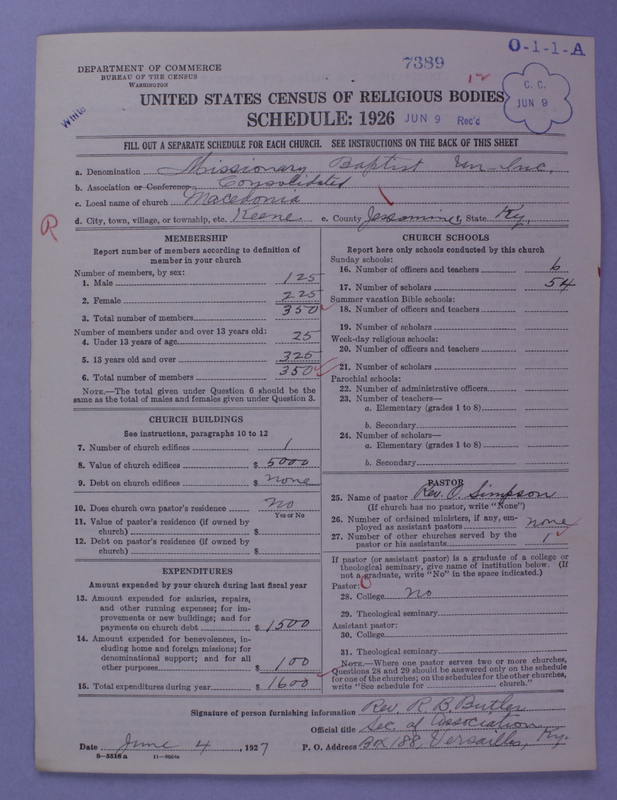 O-1-1-A
7389
DEPARTMENT OF COMMERCE
BUREAU OF THE CENSUS
WASHINGTON
C. C.
JUN 9
White
UNITED STATES CENSUS OF RELIGIOUS BODIES
SCHEDULE: 1926 JUN 9 Rec'd
FILL OUT A SEPARATE SCHEDULE FOR EACH CHURCH. SEE INSTRUCTIONS ON THE BACK OF THIS SHEET
a. Denomination Missionary Baptist Un-Inc.
b. Association or Conference Consolidated
c. Local name of church Macedonia
d. City, town, village, or township, etc. Keene e. County Jessamine f. State Ky.
R
MEMBERSHIP
Report number of members according to definition of
member in your church
Number of members, by sex:
1. Male 125
2. Female 225
3. Total number of members 350
Number of members under and over 13 years old:
4. Under 13 years of age 25
5. 13 years old and over 325
6. Total number of members 350
NOTE.—The total given under Question 6 should be the
same as the total of males and females given under Question 3.
CHURCH BUILDINGS
See instructions, paragraphs 10 to 12
7. Number of church edifices 1
8. Value of church edifices $ 5000
9. Debt on church edifices $ none
10. Does church own pastor's residence no
Yes or No
11. Value of pastor's residence (if owned by
church) $
12. Debt on pastor's residence (if owned by
church) $
EXPENDITURES
Amount expended by your church during last fiscal year
13. Amount expended for salaries, repairs,
and other running expenses; for im-
provements or new buildings; and for
payments on church debt $ 1500
14. Amount expended for benevolences, in-
cluding home and foreign missions; for
denominational support; and for all
other purposes $ 100
15. Total expenditures during year $ 1600
CHURCH SCHOOLS
Report here only schools conducted by this church
Sunday schools:
16. Number of officers and teachers 6
17. Number of scholars 54
Summer vacation Bible schools:
18. Number of officers and teachers
19. Number of scholars
Week-day religious schools:
20. Number of officers and teachers
21. Number of scholars
Parochial schools:
22. Number of administrative officers
23. Number of teachers—
a. Elementary (grades 1 to 8)
b. Secondary
24. Number of scholars—
a. Elementary (grades 1 to 8)
b. Secondary
PASTOR
25. Name of pastor Rev. O. Simpson
(If church has no pastor, write "None")
26. Number of ordained ministers, if any, em-
ployed as assistant pastors none
27. Number of other churches served by the
pastor or his assistants 1
If pastor (or assistant pastor) is a graduate of a college or
theological seminary, give name of institution below. (If
not a graduate, write "No" in the space indicated.)
Pastor: 0
28. College no
29. Theological seminary
Assistant pastor:
30. College
31. Theological seminary
NOTE.—Where one pastor serves two or more churches,
Questions 28 and 29 should be answered only on the schedule
for one of the churches; on the schedules for the other churches,
write "See schedule for church."
Signature of person furnishing information Rev. R. B. Butler
Official title Sec. of Association
Date June 4, 1927 P. O. Address Box 188, Versailles, Ky.